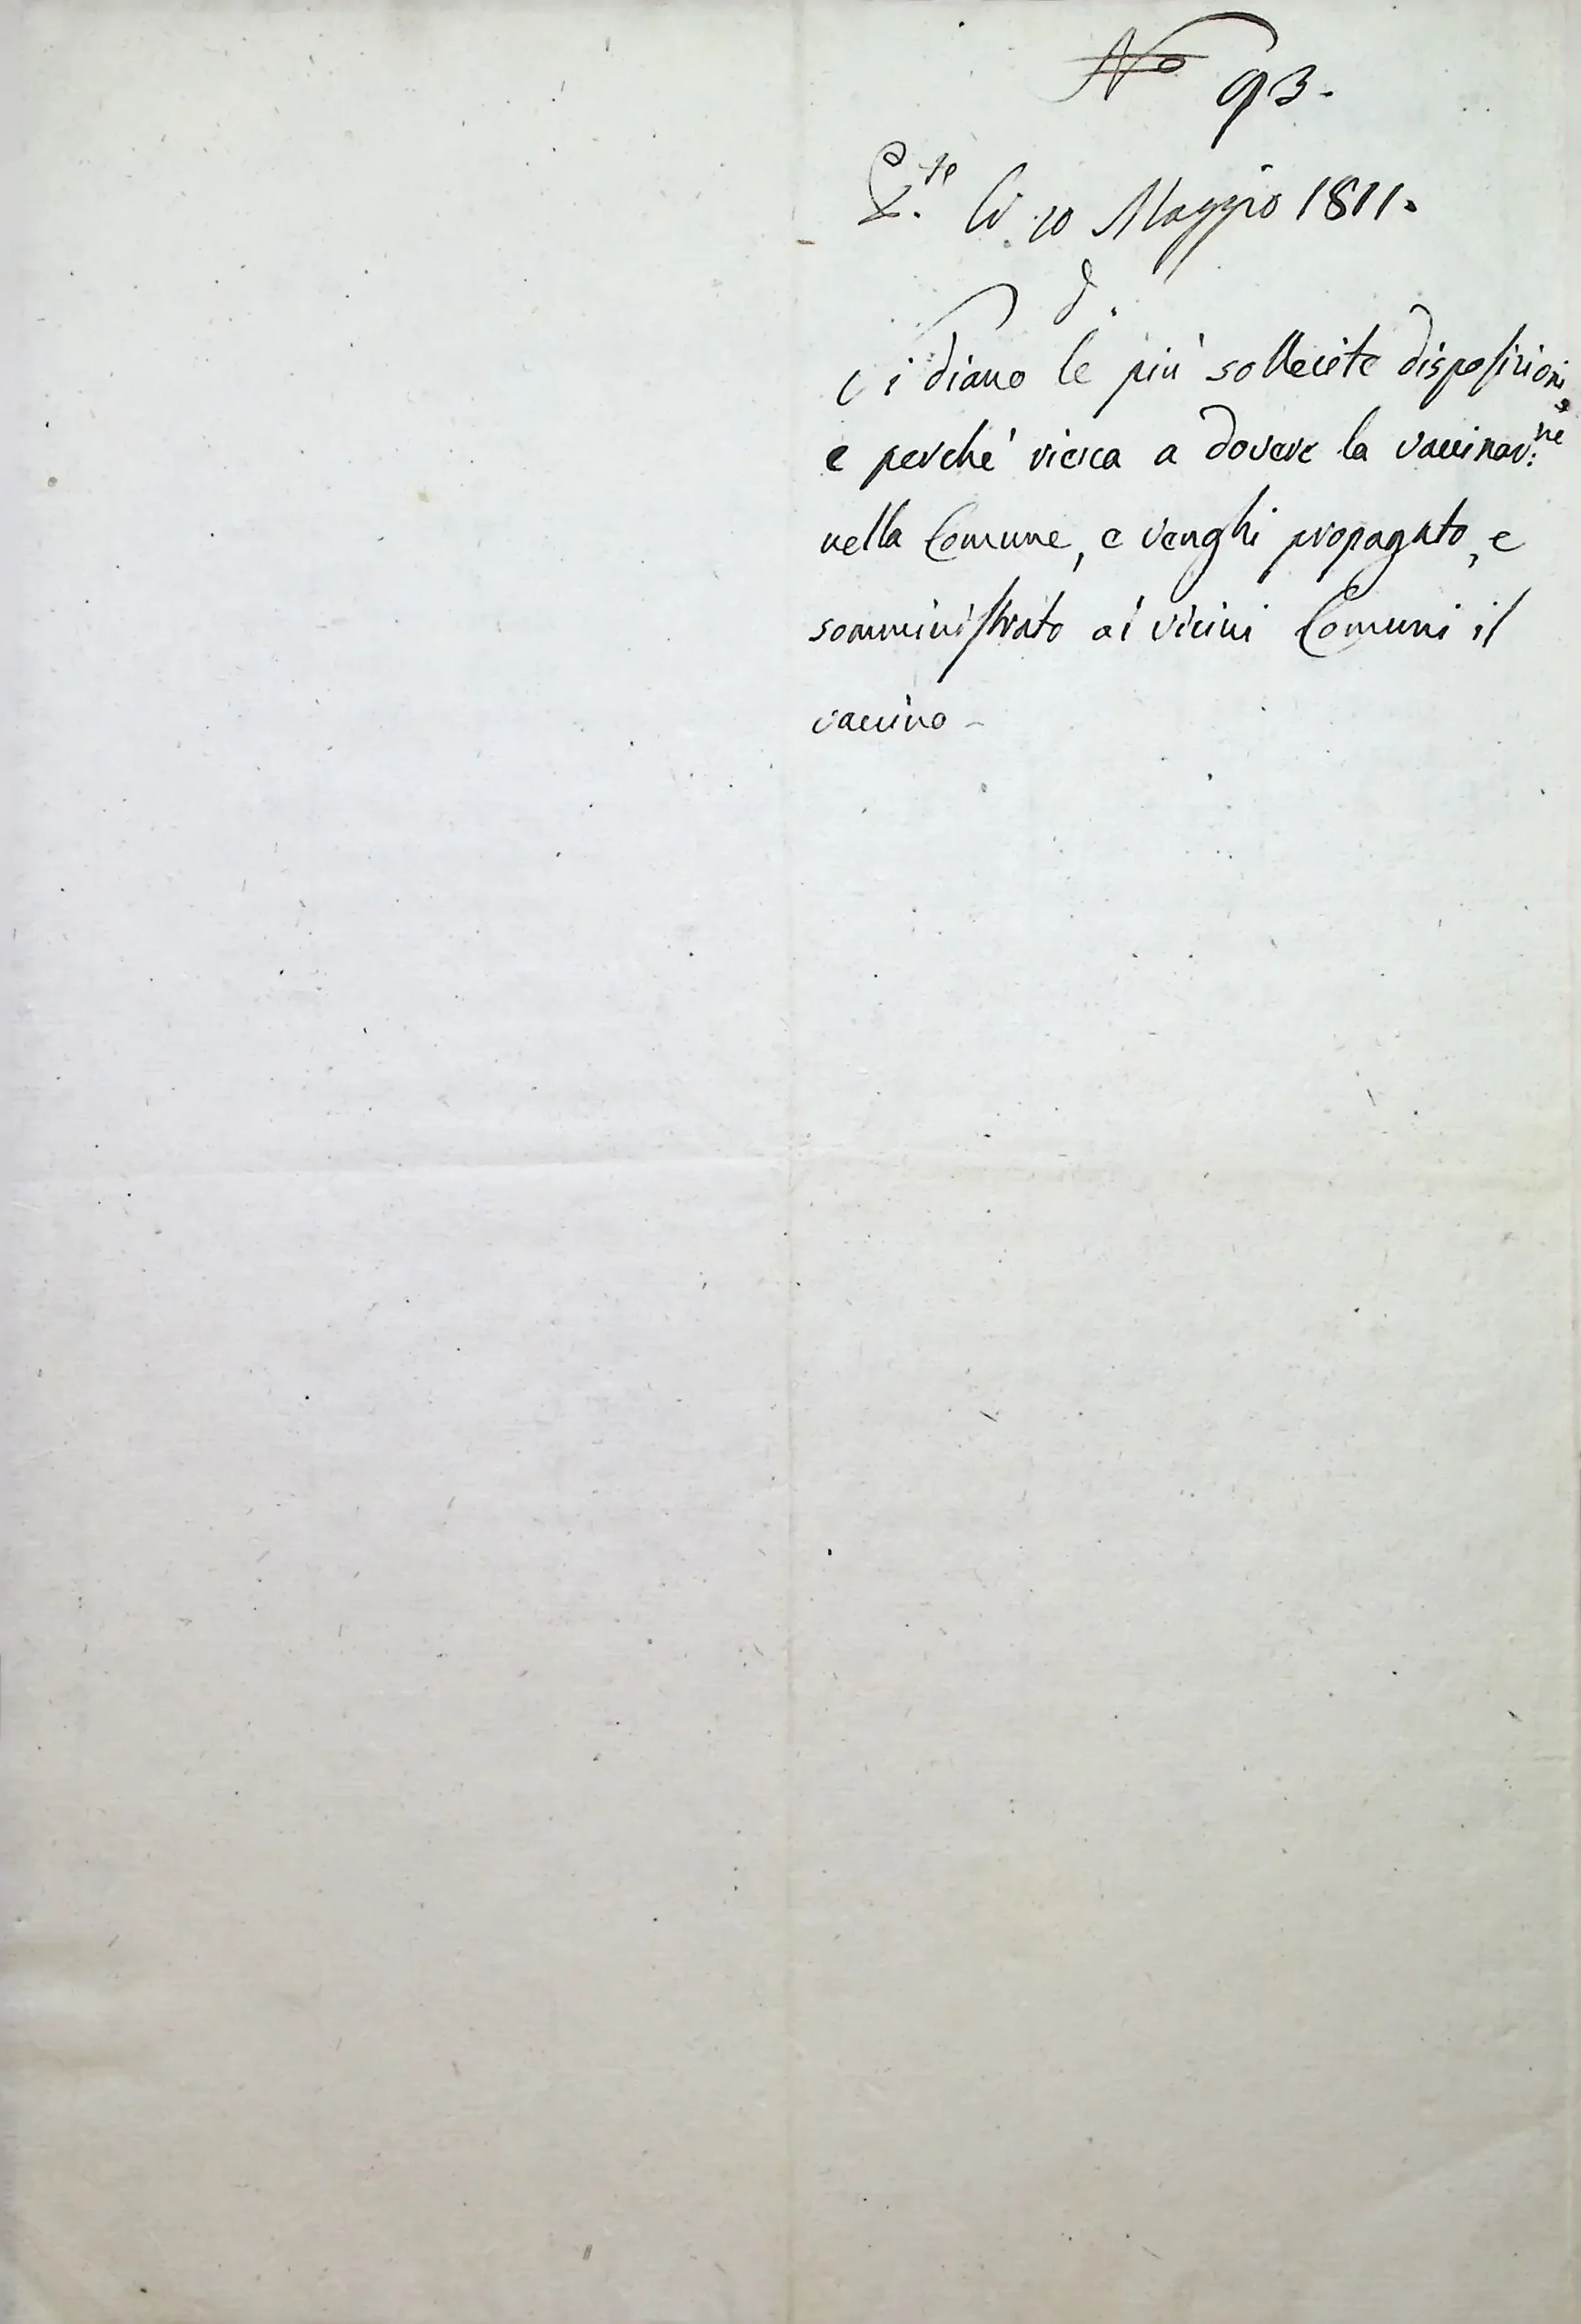 No 93.
li 10 Maggio 1811.
Si diano le più sollecite disposizioni,
e perchè riesca a dovere la vaccinaz:ne
nella Comune, e venghi propagato, e
somministrato ai vicini Comuni il
vaccino -